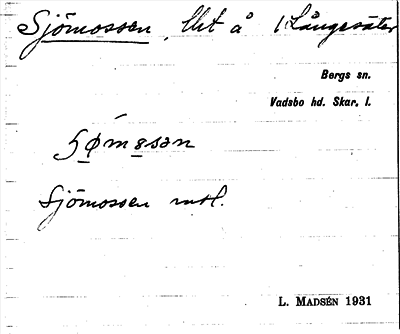 Sjömossen, lht å 1 Långesäter
Bergs sn.
Vadsbo hd. Skar. l.
Sjömossen mtl.
L. MADSÉN 1931